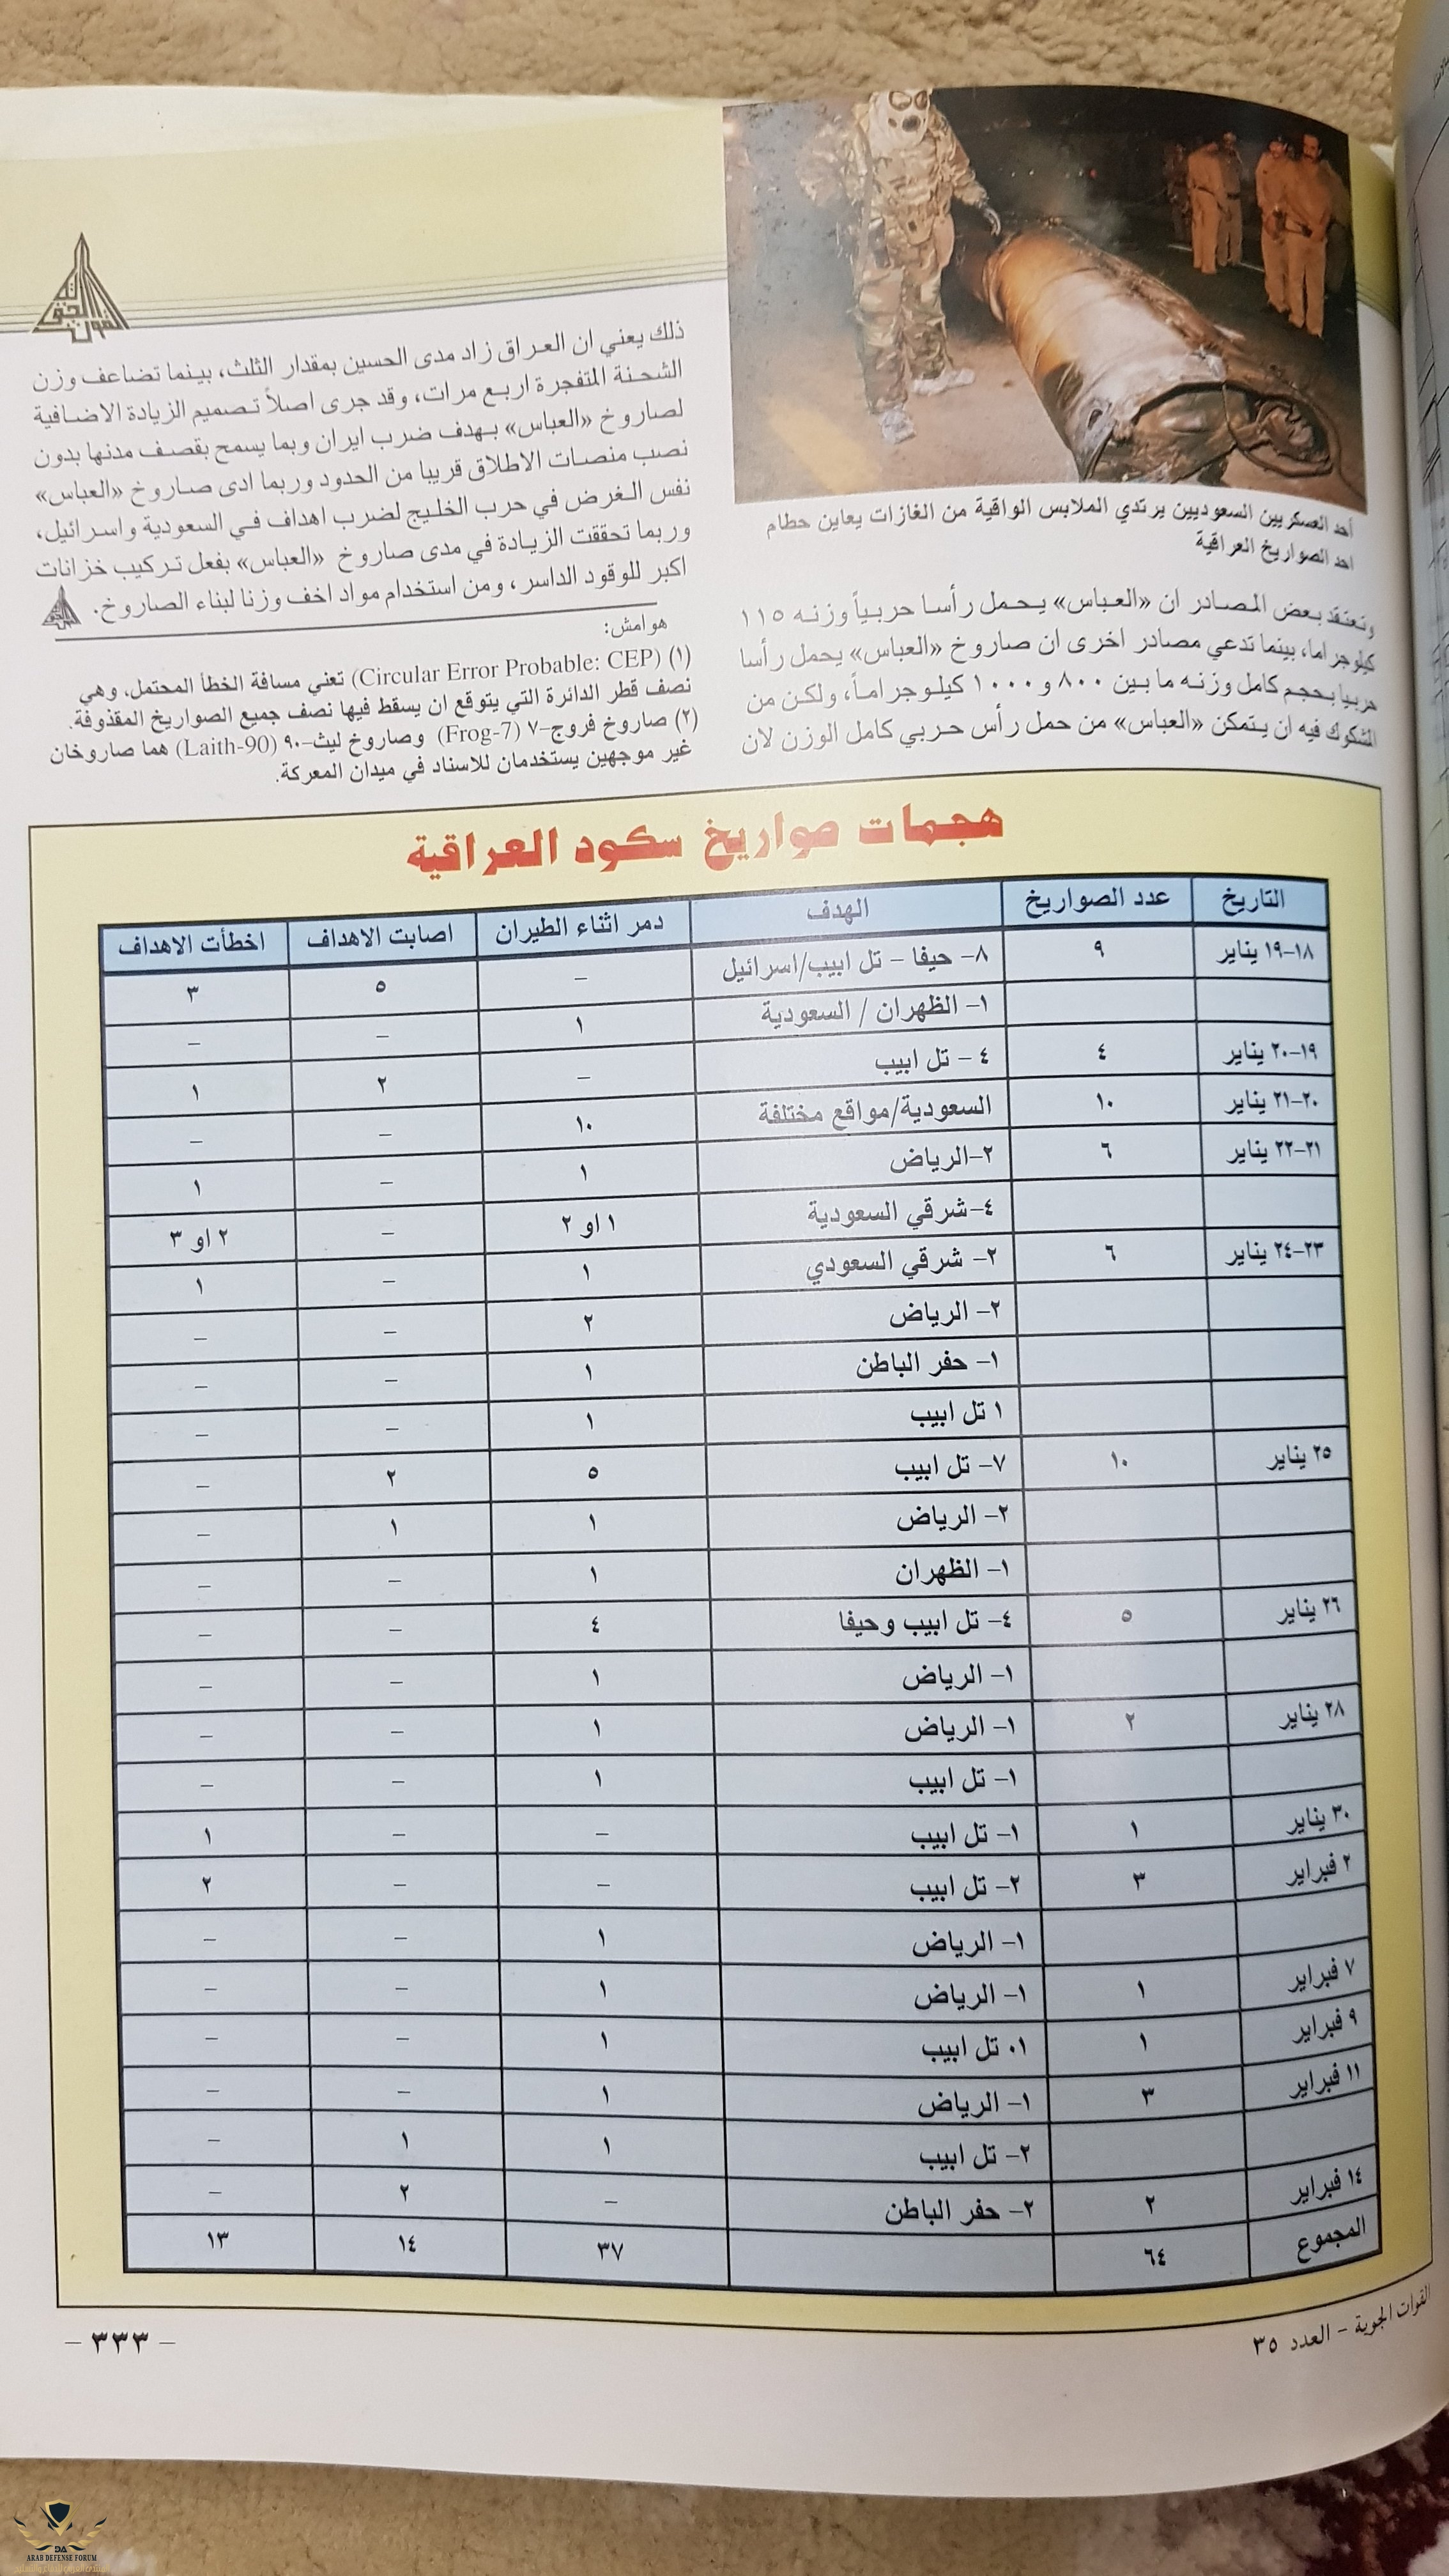 أحد العسكريين السعوديين يرتدي الملابس الواقية من الغازات يعاين حطام
احد الصواريخ العراقية
وتعتقد بعض المصادر ان «العباس» يحمل رأسا حربياً وزنه ١١٥
كيلوجراما، بينما تدعي مصادر اخرى ان صاروخ «العباس» يحمل رأسا
حربيا بحجم كامل وزنه ما بين ٨٠٠ و ١٠٠٠ كيلوجراماً، ولكن من
الشكوك فيه ان يتمكن «العباس» من حمل رأس حربي كامل الوزن لان
ذلك يعني ان العراق زاد مدى الحسين بمقدار الثلث، بينما تضاعف وزن
الشحنة المتفجرة اربع مرات، وقد جرى اصلاً تصميم الزيادة الاضافية
لصاروخ «العباس» بهدف ضرب ايران وبما يسمح بقصف مدنها بدون
نصب منصات الاطلاق قريبا من الحدود وربما ادى صاروخ «العباس»
نفس الغرض في حرب الخليج لضرب اهداف في السعودية واسرائيل،
وربما تحققت الزيادة في مدى صاروخ «العباس» بفعل تركيب خزانات
اكبر للوقود الداسر، ومن استخدام مواد اخف وزنا لبناء الصاروخ.
هوامش:
(١) (Circular Error Probable: CEP) تعني مسافة الخطأ المحتمل، وهي
نصف قطر الدائرة التي يتوقع ان يسقط فيها نصف جميع الصواريخ المقذوفة.
(٢) صاروخ فروج-٧ (Frog-7) وصاروخ ليث-٩٠ (Laith-90) هما صاروخان
غير موجهين يستخدمان للاسناد في ميدان المعركة.
هجمات صواريخ سكود العراقية
التاريخ عدد الصواريخ الهدف دمر اثناء الطيران اصابت الاهداف اخطأت الاهداف
١٨-١٩ يناير ٩ ٨- حيفا - تل ابيب/اسرائيل – ٥ ٣
١- الظهران / السعودية ١ – –
١٩-٢٠ يناير ٤ ٤ - تل ابيب – ٢ ١
٢٠-٢١ يناير ١٠ السعودية/مواقع مختلفة ١٠ – –
٢١-٢٢ يناير ٦ ٢-الرياض ١ – ١
٤-شرقي السعودية ١ او ٢ – ٢ او ٣
٢٣-٢٤ يناير ٦ ٢- شرقي السعودي ١ – ١
٢- الرياض ٢ – –
١- حفر الباطن ١ – –
١ تل ابيب ١ – –
٢٥ يناير ١٠ ٧- تل ابيب ٥ ٢ –
٢- الرياض ١ ١ –
١- الظهران ١ – –
٢٦ يناير ٥ ٤- تل ابيب وحيفا ٤ – –
١- الرياض ١ – –
٢٨ يناير ٢ ١- الرياض ١ – –
١- تل ابيب ١ – –
٣٠ يناير ١ ١- تل ابيب – – ١
٢ فبراير ٣ ٢- تل ابيب – – ٢
١- الرياض ١ – –
٧ فبراير ١ ١- الرياض ١ – –
٩ فبراير ١ ٠١ تل ابيب ١ – –
١١ فبراير ٣ ١- الرياض ١ – –
٢- تل ابيب ١ ١ –
١٤ فبراير ٢ ٢- حفر الباطن – ٢ –
المجموع ٦٤ ٣٧ ١٤ ١٣
القوات الجوية - العدد ٣٥
- ٣٣٣ -
DA
ARAB DEFENSE FORUM